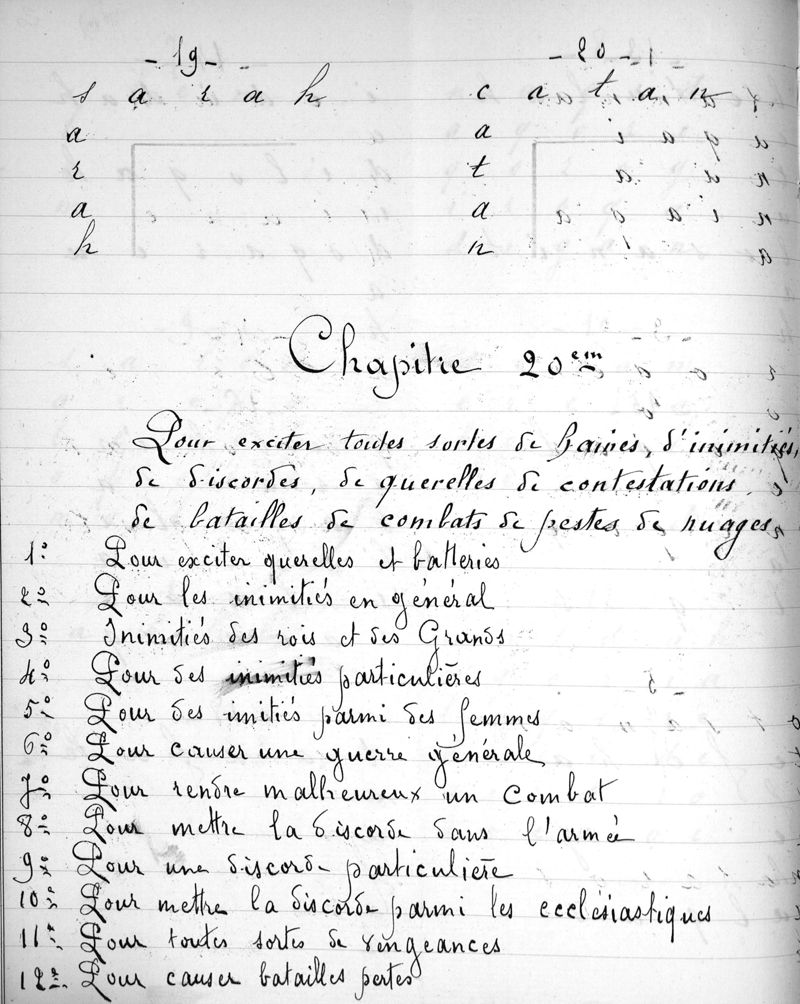 - 19 -
- 20 -
s a r a h
c a t a n
a
a
r
t
a
a
h
n
Chapitre 20em
Pour exciter toutes sortes de haines, d'inimitiés,
de discordes, de querelles de contestations
de batailles de combats de pestes de nuages
1º Pour exciter querelles et batteries
2º Pour les inimitiés en général
3º Inimitiés des rois et des Grands
4º Pour des inimitiés particulières
5º Pour des imitiés parmi des femmes
6º Pour causer une guerre générale
7º Pour rendre malheureux un combat
8º Pour mettre la discorde dans l'armée
9º Pour une discorde particulière
10º Pour mettre la discorde parmi les ecclésiastiques
11º Pour toutes sortes de vengeances
12º Pour causer batailles pertes